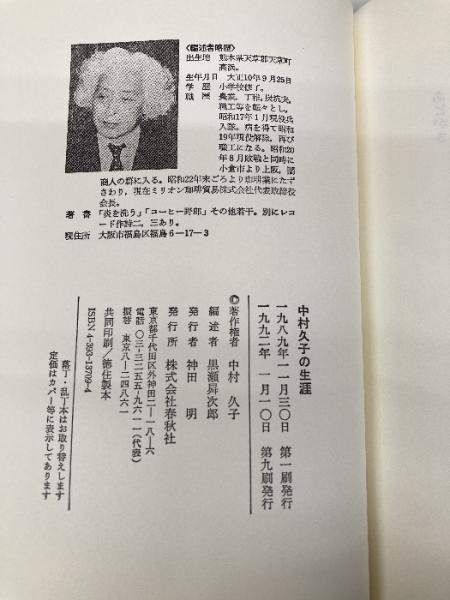 〈編述者略歴〉
出生地 熊本県天草郡天草町
高浜。
生年月日 大正10年9月25日
学歴 小学校修了。
職歴 農業、丁稚、炭坑夫、
職工等を転々とし、
昭和17年1月現役兵
入隊。病を得て昭和
19年現役解除。再び
職工になる。昭和20
年8月敗戦と同時に
小倉市より上阪。闇
商人の群に入る。昭和22年末ごろより珈琲業にたず
さわり、現在ミリオン珈琲貿易株式会社代表取締役
会長。
著書 「炎を洗う」「コーヒー野郎」その他若干。別にレコ
ード作詩二、三あり。
現住所 大阪市福島区福島6-17-3
中村久子の生涯
一九八九年一一月三〇日 第一刷発行
一九九二年 一月一〇日 第九刷発行
©著作権者 中村久子
編述者 黒瀬曻次郎
発行者 神田明
発行所 株式会社春秋社
東京都千代田区外神田二-一八-六
電話 〇三-三二五五-九六一一(代表)
振替 東京八-二四八六一
共同印刷/徳住製本
ISBN 4-393-13709-4
落丁・乱丁本はお取り替えします
定価はカバー等に表示してあります